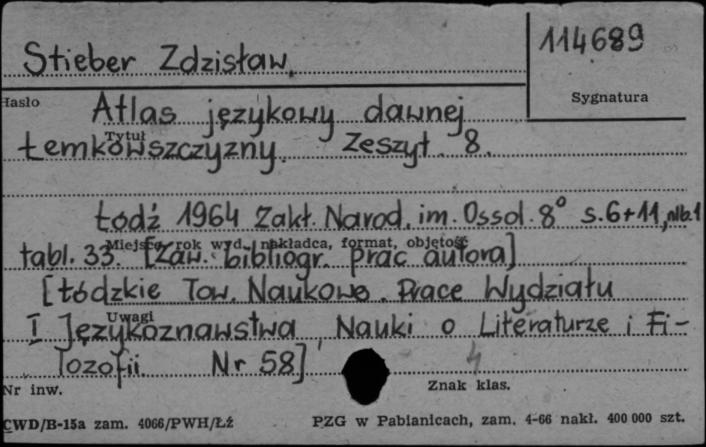 114689
Stieber Zdzisław
Hasło
Sygnatura
Atlas językowy dawnej
Tytuł
Łemkowszczyzny. Zeszyt 8.
Łódź 1964 Zakł. Narod. im. Ossol. 8° s.6+11, nlb.1
Miejsce, rok wyd., nakładca, format, objętość
tabl. 33. [Zaw. bibliogr. prac autora]
[Łódzkie Tow. Naukowe. Prace Wydziału
Uwagi
I Językoznawstwa, Nauki o Literaturze i Fi-
lozofii. Nr 58]
4
Nr inw.
Znak klas.
CWD/B-15a zam. 4066/PWH/Łź
PZG w Pabianicach, zam. 4-66 nakł. 400 000 szt.